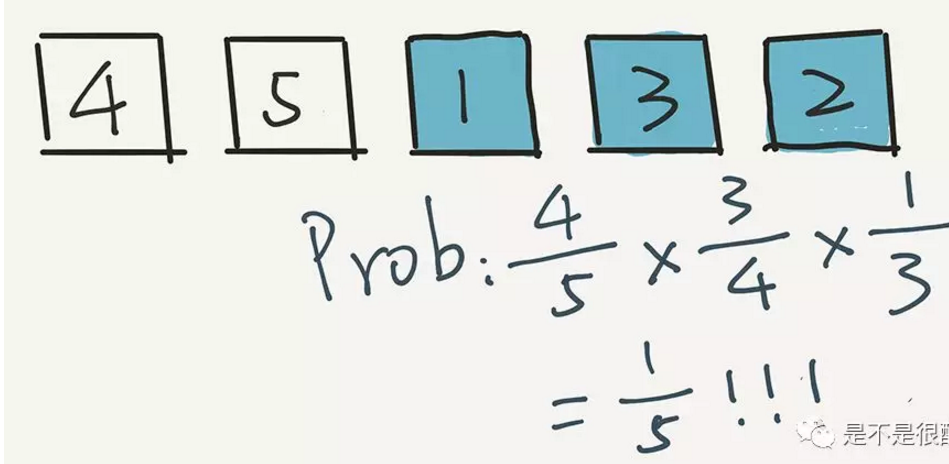 4 5 1 3 2
Prob: 4/5 × 3/4 × 1/3
= 1/5 !!!
是不是很